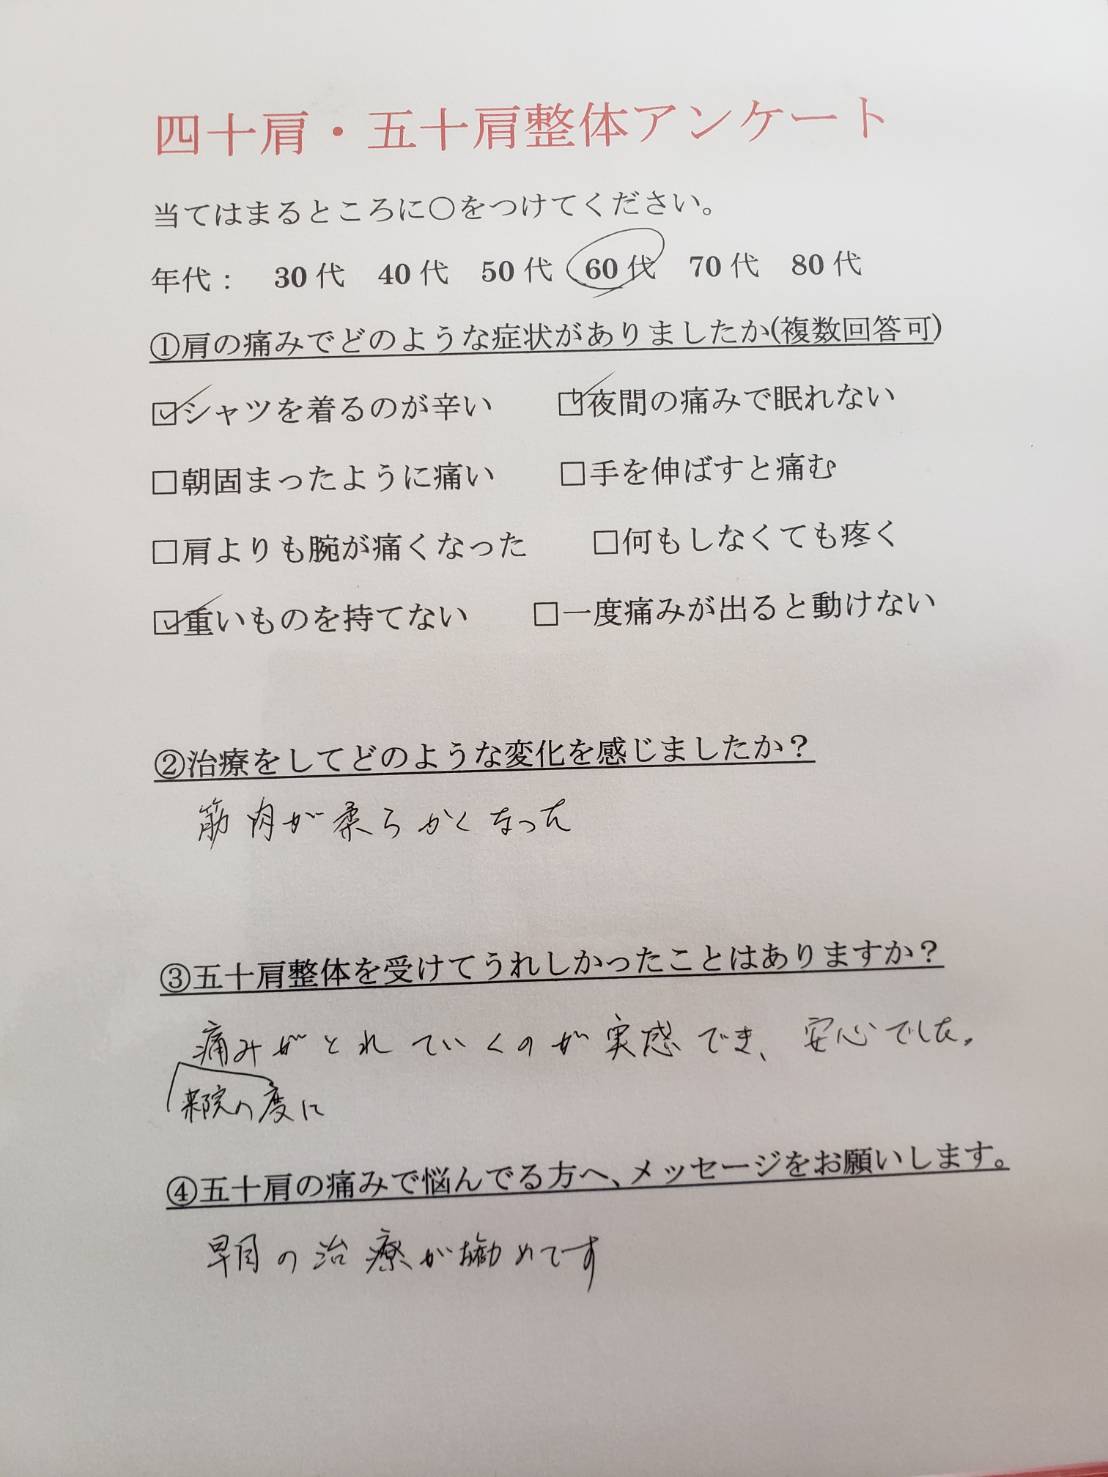 四十肩・五十肩整体アンケート
当てはまるところに○をつけてください。
年代： 30代 40代 50代 60代 70代 80代
①肩の痛みでどのような症状がありましたか(複数回答可)
☑シャツを着るのが辛い ☑夜間の痛みで眠れない
□朝固まったように痛い □手を伸ばすと痛む
□肩よりも腕が痛くなった □何もしなくても疼く
☑重いものを持てない □一度痛みが出ると動けない
②治療をしてどのような変化を感じましたか？
筋肉が柔らかくなった
③五十肩整体を受けてうれしかったことはありますか？
痛みがとれていくのが実感でき、安心でした。
来院の度に
④五十肩の痛みで悩んでる方へ、メッセージをお願いします。
早目の治療がお勧めです